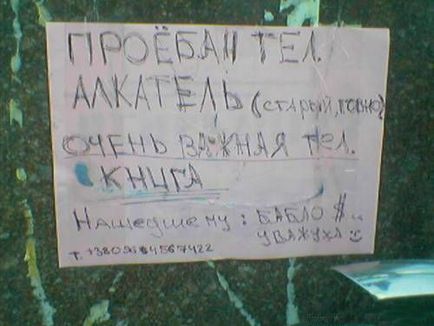 ПРОЁБАН ТЕЛ.
АЛКАТЕЛЬ (СТАРЫЙ, ГОВНО)
ОЧЕНЬ ВАЖНАЯ ТЕЛ.
КНИГА
Нашедшему: БАБЛО $..
УВАЖУХА